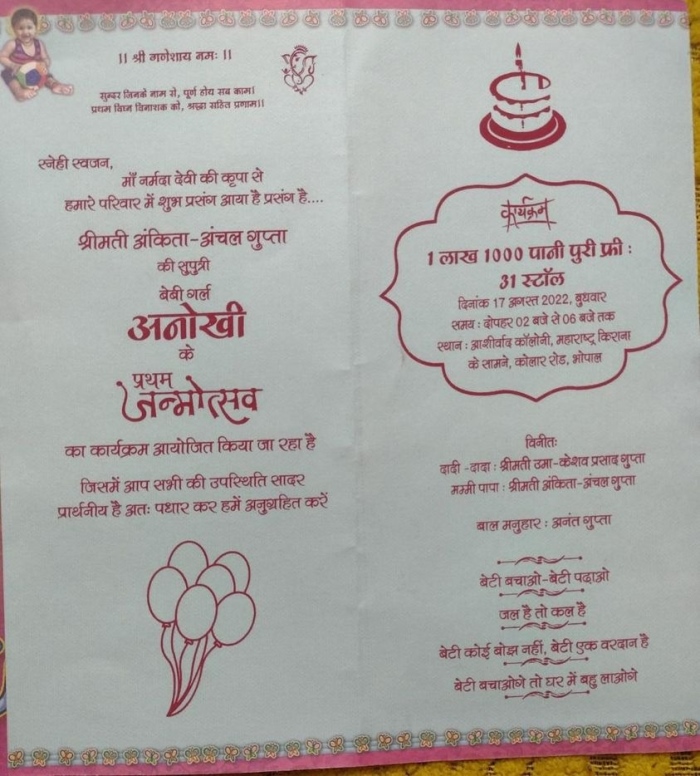 ॥ श्री गणेशाय नमः ॥
सुन्दर जिनके नाम से, पूर्ण होय सब काम।
प्रथम विघ्न विनाशक को, श्रद्धा सहित प्रणाम॥
स्नेही स्वजन,
माँ नर्मदा देवी की कृपा से
हमारे परिवार में शुभ प्रसंग आया है प्रसंग है....
श्रीमती अंकिता-अंचल गुप्ता
की सुपुत्री
बेबी गर्ल
अनोखी
के
प्रथम
जन्मोत्सव
का कार्यक्रम आयोजित किया जा रहा है
जिसमें आप सभी की उपस्थिति सादर
प्रार्थनीय है अतः पधार कर हमें अनुग्रहित करें
कार्यक्रम
1 लाख 1000 पानी पुरी फ्री :
31 स्टॉल
दिनांक 17 अगस्त 2022, बुधवार
समय : दोपहर 02 बजे से 06 बजे तक
स्थान : आशीर्वाद कॉलोनी, महाराष्ट्र किराना
के सामने, कोलार रोड, भोपाल
विनीतः
दादी -दादा : श्रीमती उमा-केशव प्रसाद गुप्ता
मम्मी पापा : श्रीमती अंकिता-अंचल गुप्ता
बाल मनुहार : अनंत गुप्ता
बेटी बचाओ-बेटी पढ़ाओ
जल है तो कल है
बेटी कोई बोझ नहीं, बेटी एक वरदान है
बेटी बचाओगे तो घर में बहु लाओगे